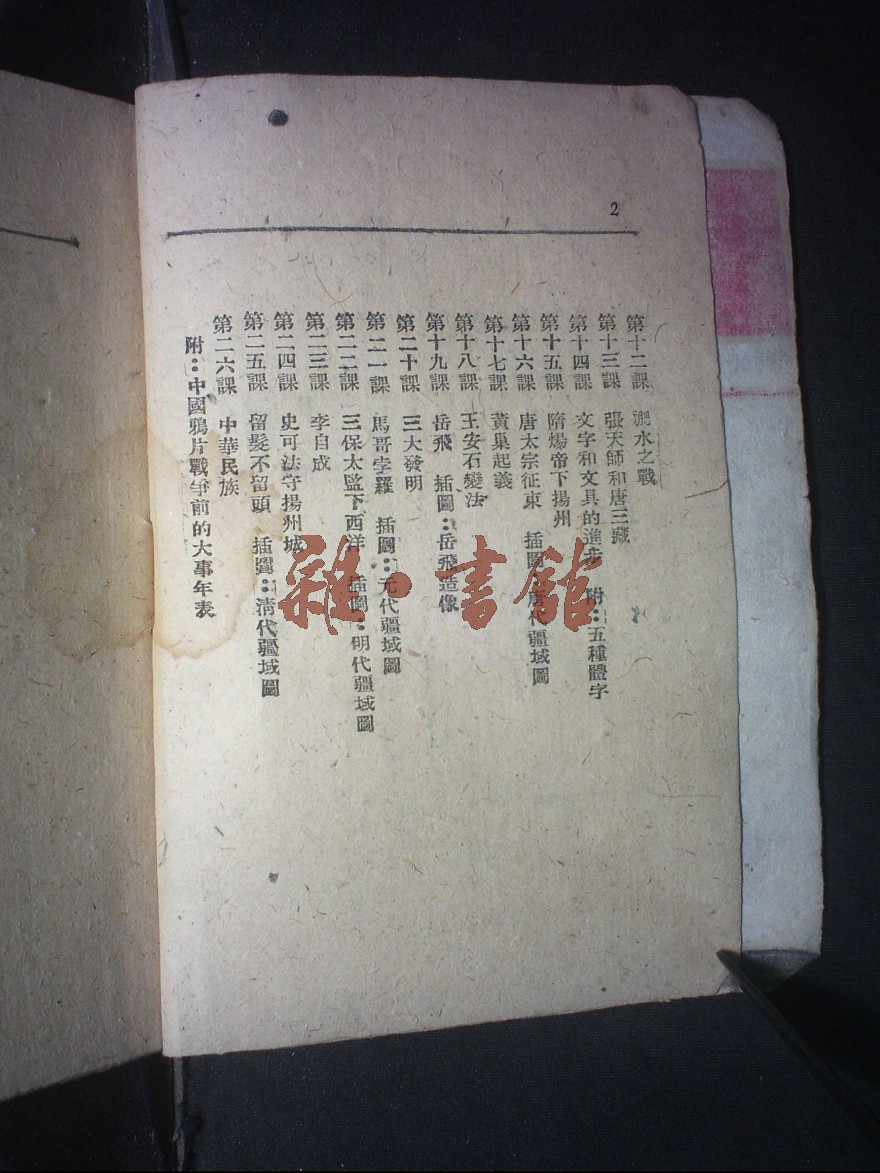 2
第十二課 淝水之戰
第十三課 張天師和唐三藏
第十四課 文字和文具的進步 附：五種體字
第十五課 隋煬帝下揚州
第十六課 唐太宗征東 插圖：唐代疆域圖
第十七課 黃巢起義
第十八課 王安石變法
第十九課 岳飛 插圖：岳飛造像
第二十課 三大發明
第二一課 馬哥孛羅 插圖：元代疆域圖
第二二課 三保太監下西洋 插圖：明代疆域圖
第二三課 李自成
第二四課 史可法守揚州城
第二五課 留髮不留頭 插圖：清代疆域圖
第二六課 中華民族
附：中國鴉片戰爭前的大事年表
雜·書館